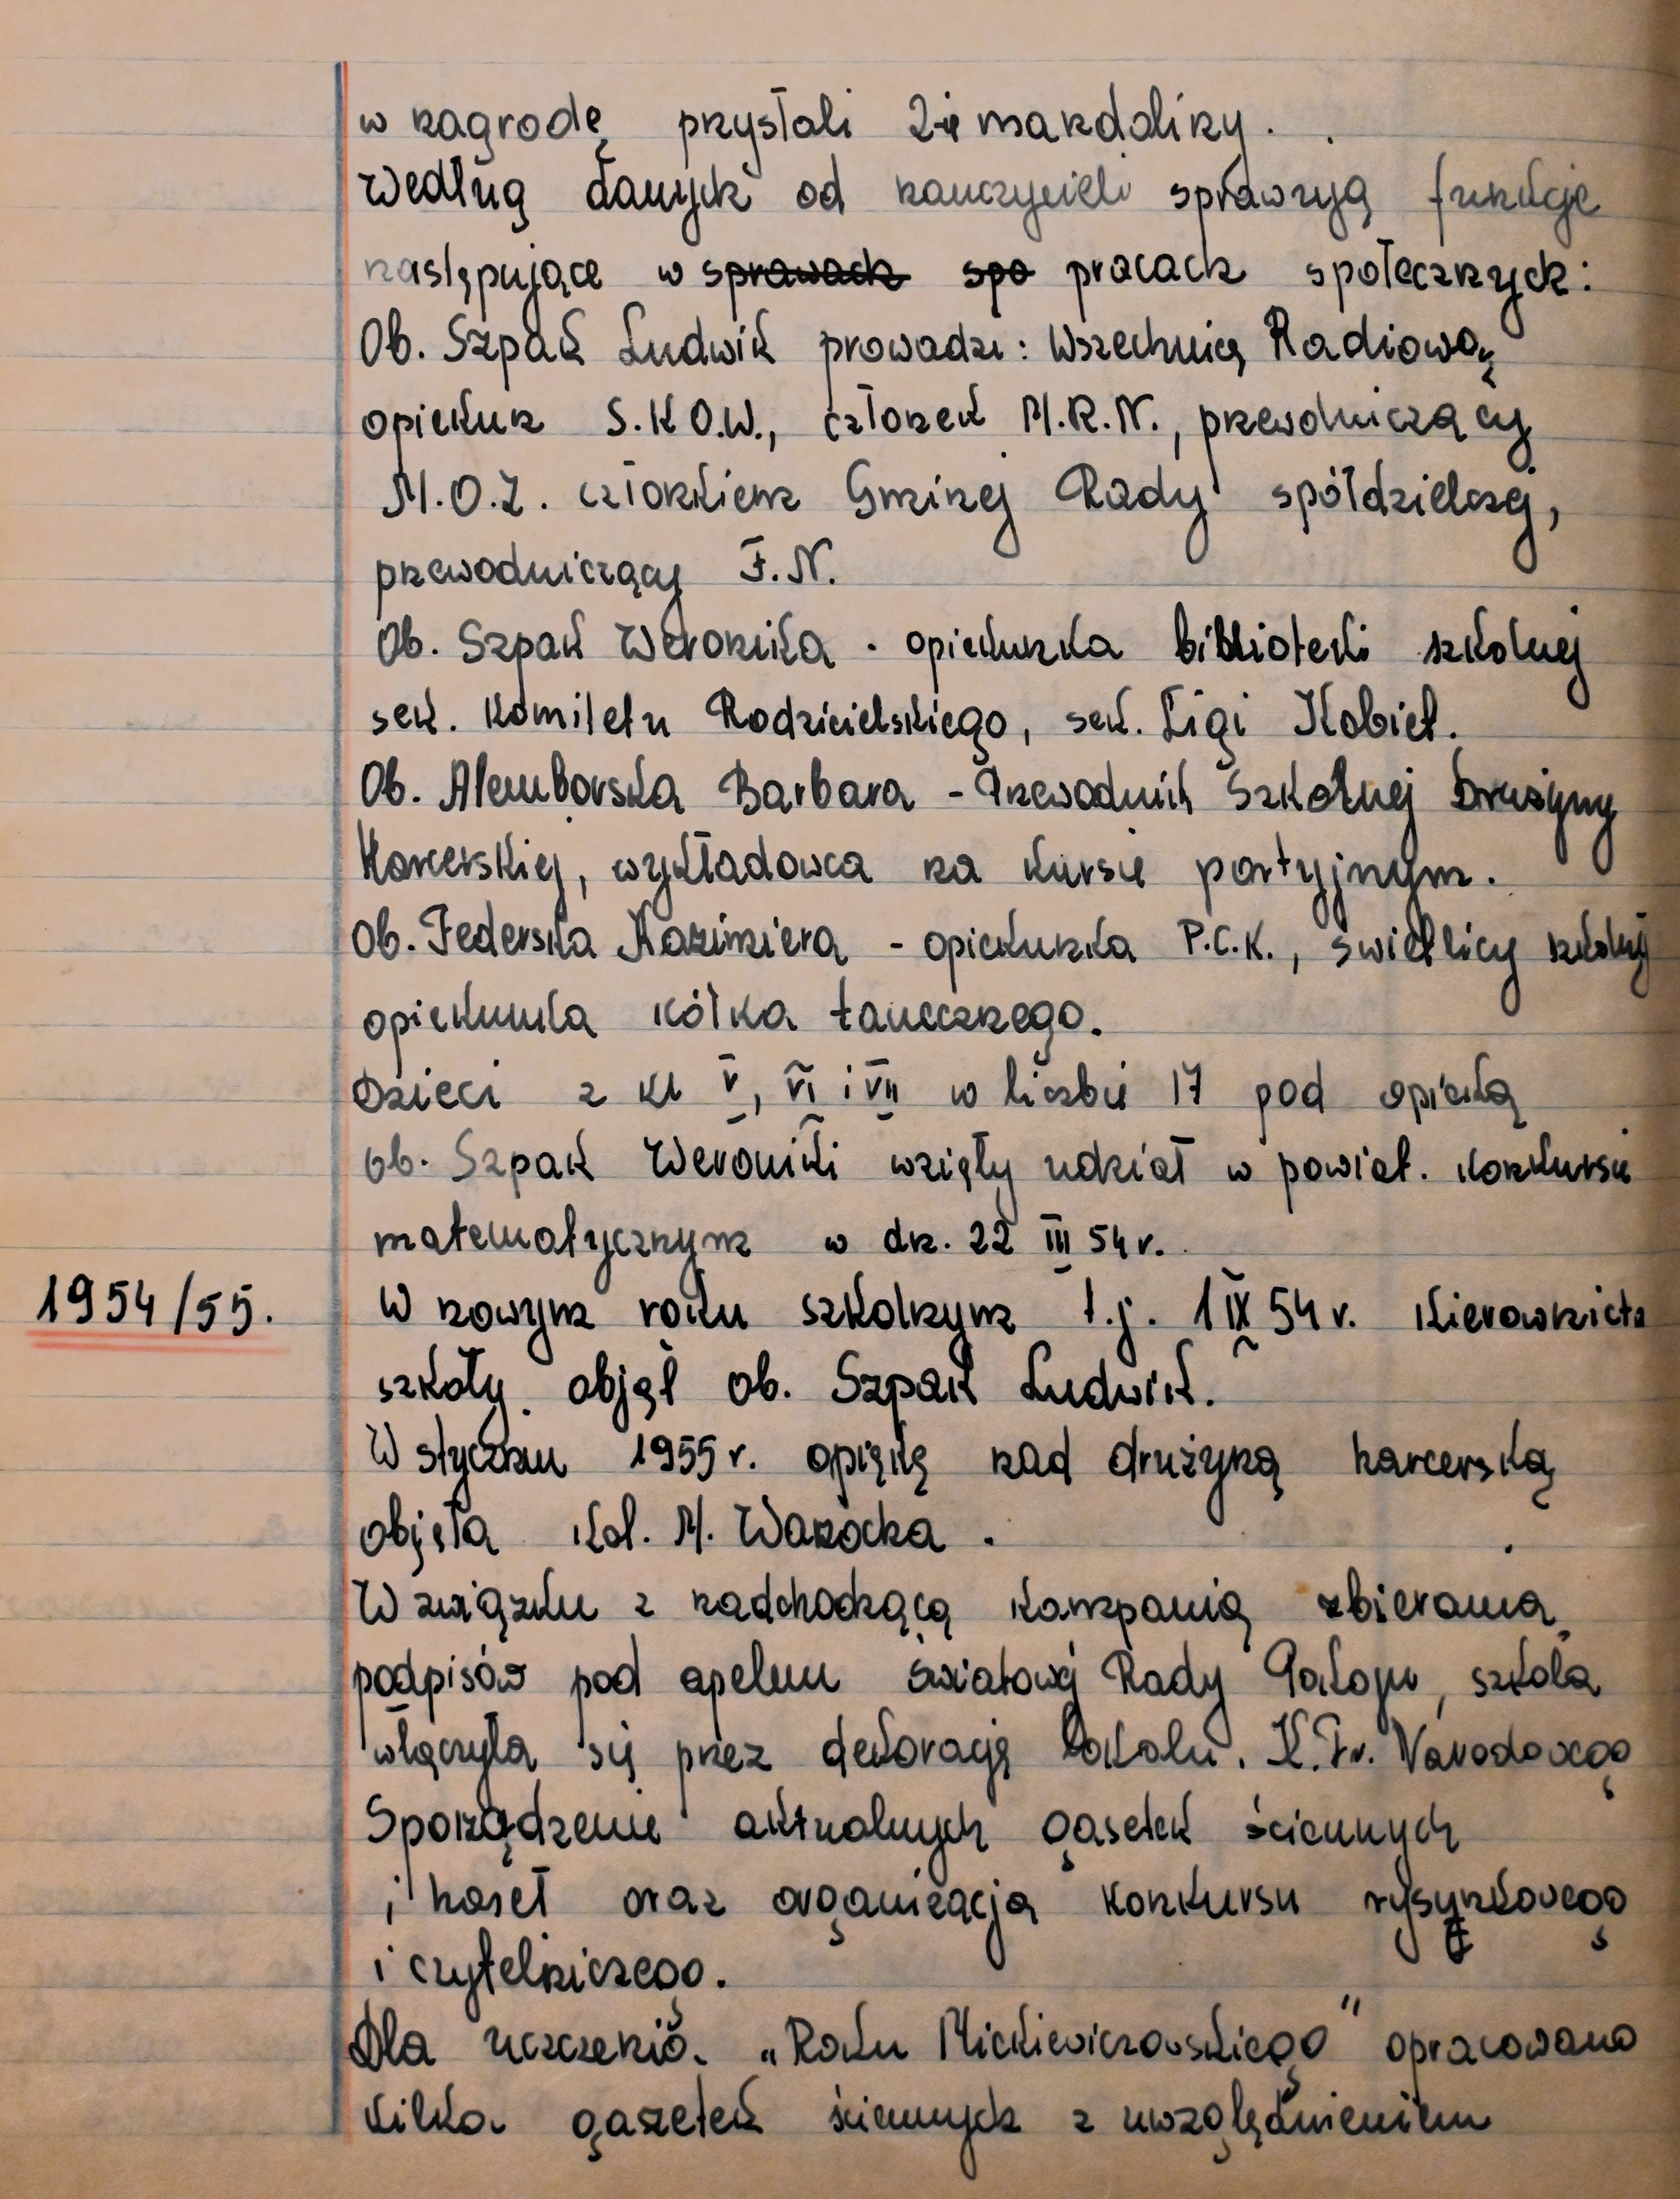 w nagrodę przysłali 2-ie mandoliny.
Według danych od nauczycieli sprawują funkcje
następujące w ~~sprawach~~ ~~spo~~ pracach społecznych:
Ob. Szpak Ludwik prowadzi: Wszechnicę Radiową,
opiekun S.K.O.W., członek M.R.N., przewodniczący
M.O.Z. członkiem Gminej Rady spółdzielczej,
przewodniczący F.N.
Ob. Szpak Weronika - opiekunka biblioteki szkolnej
sek. Komitetu Rodzicielskiego, sek. Ligi Kobiet.
Ob. Alemborska Barbara - Przewodnik Szkolnej Drużyny
Harcerskiej, wykładowca na kursie partyjnym.
Ob. Federska Kazimiera - opiekunka P.C.K., świetlicy szkolnej
opiekunka kółka tanecznego.
Dzieci z kl V, VI i VII w liczbie 17 pod opieką
ob. Szpak Weroniki wzięły udział w powiat. konkursie
matematycznym w dn. 22 III 54 r.
1954/55.
W nowym roku szkolnym t.j. 1 IX 54 r. kierownictwo
szkoły objął ob. Szpak Ludwik.
W styczniu 1955 r. opiekę nad drużyną harcerską
objęła kol. M. Wanocka.
W związku z nadchodzącą kampanią zbierania
podpisów pod apelem światowej Rady Pokoju, szkoła
włączyła się przez dekorację lokalu. K. Fr. Narodowego
Sporządzenie aktualnych gazetek ściennych
i haseł oraz organizacja konkursu rysynkowego
i czytelniczego.
Dla uczczenia „Roku Mickiewiczowskiego" opracowano
kilka gazetek ściennych z uwzględnieniem